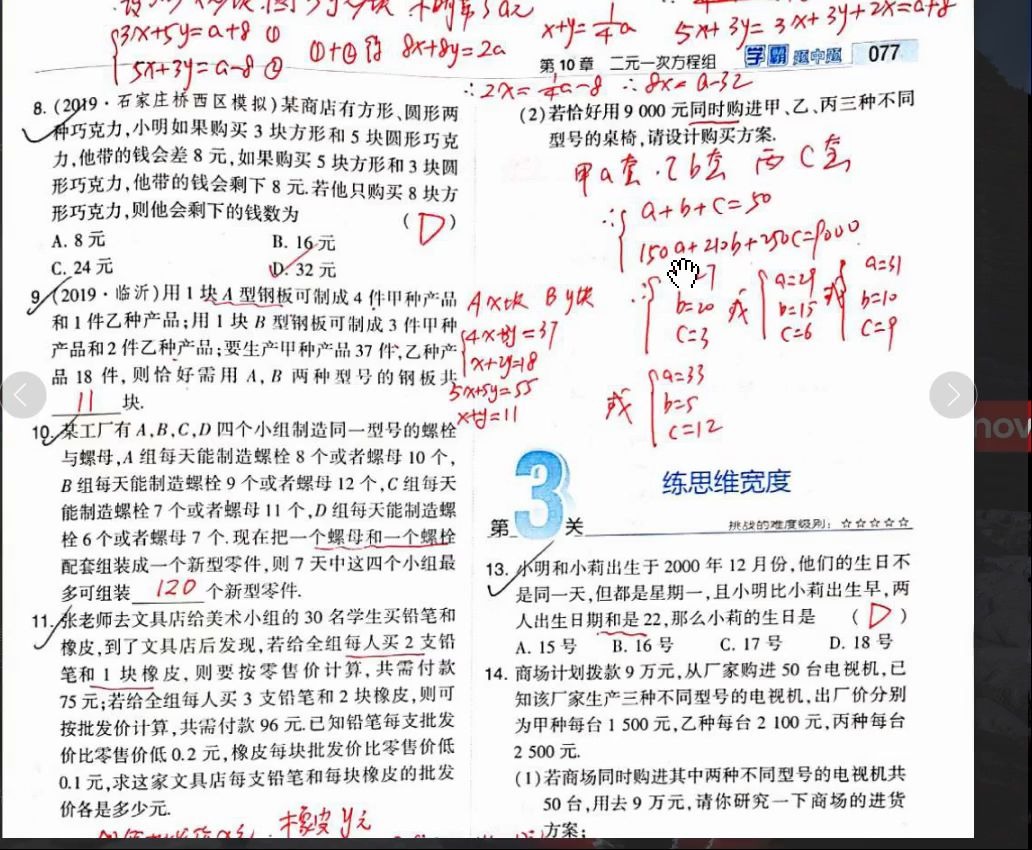 {3x+5y=a+8 ①
5x+3y=a-8 ②
①+② 得 8x+8y=2a
x+y=1/4a
5x+3y=3x+3y+2x=a+8
第 10 章 二元一次方程组 学霸 题中题 077
∴2x=1/4a-8 ∴8x=a-32
8. (2019·石家庄桥西区模拟)某商店有方形、圆形两
种巧克力,小明如果购买 3 块方形和 5 块圆形巧克
力,他带的钱会差 8 元,如果购买 5 块方形和 3 块圆
形巧克力,他带的钱会剩下 8 元.若他只购买 8 块方
形巧克力,则他会剩下的钱数为 ( D )
A. 8 元 B. 16 元
C. 24 元 D. 32 元
9. (2019·临沂)用 1 块 A 型钢板可制成 4 件甲种产品
和 1 件乙种产品;用 1 块 B 型钢板可制成 3 件甲种
产品和 2 件乙种产品;要生产甲种产品 37 件,乙种产
品 18 件,则恰好需用 A,B 两种型号的钢板共
11 块.
A x块 B y块
x+2y=18
5x+5y=55
x+y=11
10. 某工厂有 A,B,C,D 四个小组制造同一型号的螺栓
与螺母,A 组每天能制造螺栓 8 个或者螺母 10 个,
B 组每天能制造螺栓 9 个或者螺母 12 个,C 组每天
能制造螺栓 7 个或者螺母 11 个,D 组每天能制造螺
栓 6 个或者螺母 7 个.现在把一个螺母和一个螺栓
配套组装成一个新型零件,则 7 天中这四个小组最
多可组装 120 个新型零件.
11. 张老师去文具店给美术小组的 30 名学生买铅笔和
橡皮,到了文具店后发现,若给全组每人买 2 支铅
笔和 1 块橡皮,则要按零售价计算,共需付款
75 元;若给全组每人买 3 支铅笔和 2 块橡皮,则可
按批发价计算,共需付款 96 元.已知铅笔每支批发
价比零售价低 0.2 元,橡皮每块批发价比零售价低
0.1 元,求这家文具店每支铅笔和每块橡皮的批发
价各是多少元.
橡皮 y元
(2)若恰好用 9 000 元同时购进甲、乙、丙三种不同
型号的桌椅,请设计购买方案.
甲a套.乙b套 丙C套
∴{a+b+c=50
150a+210b+250c=9000
b=20
c=3
或 {a=29
b=15
c=6
或 {a=31
b=10
c=9
或 {a=33
b=5
c=12
第 3 关 练思维宽度
挑战的难度级别:☆☆☆☆☆
13. 小明和小莉出生于 2000 年 12 月份,他们的生日不
是同一天,但都是星期一,且小明比小莉出生早,两
人出生日期和是 22,那么小莉的生日是 ( D )
A. 15 号 B. 16 号 C. 17 号 D. 18 号
14. 商场计划拨款 9 万元,从厂家购进 50 台电视机,已
知该厂家生产三种不同型号的电视机,出厂价分别
为甲种每台 1 500 元,乙种每台 2 100 元,丙种每台
2 500 元.
(1)若商场同时购进其中两种不同型号的电视机共
50 台,用去 9 万元,请你研究一下商场的进货
方案;
now